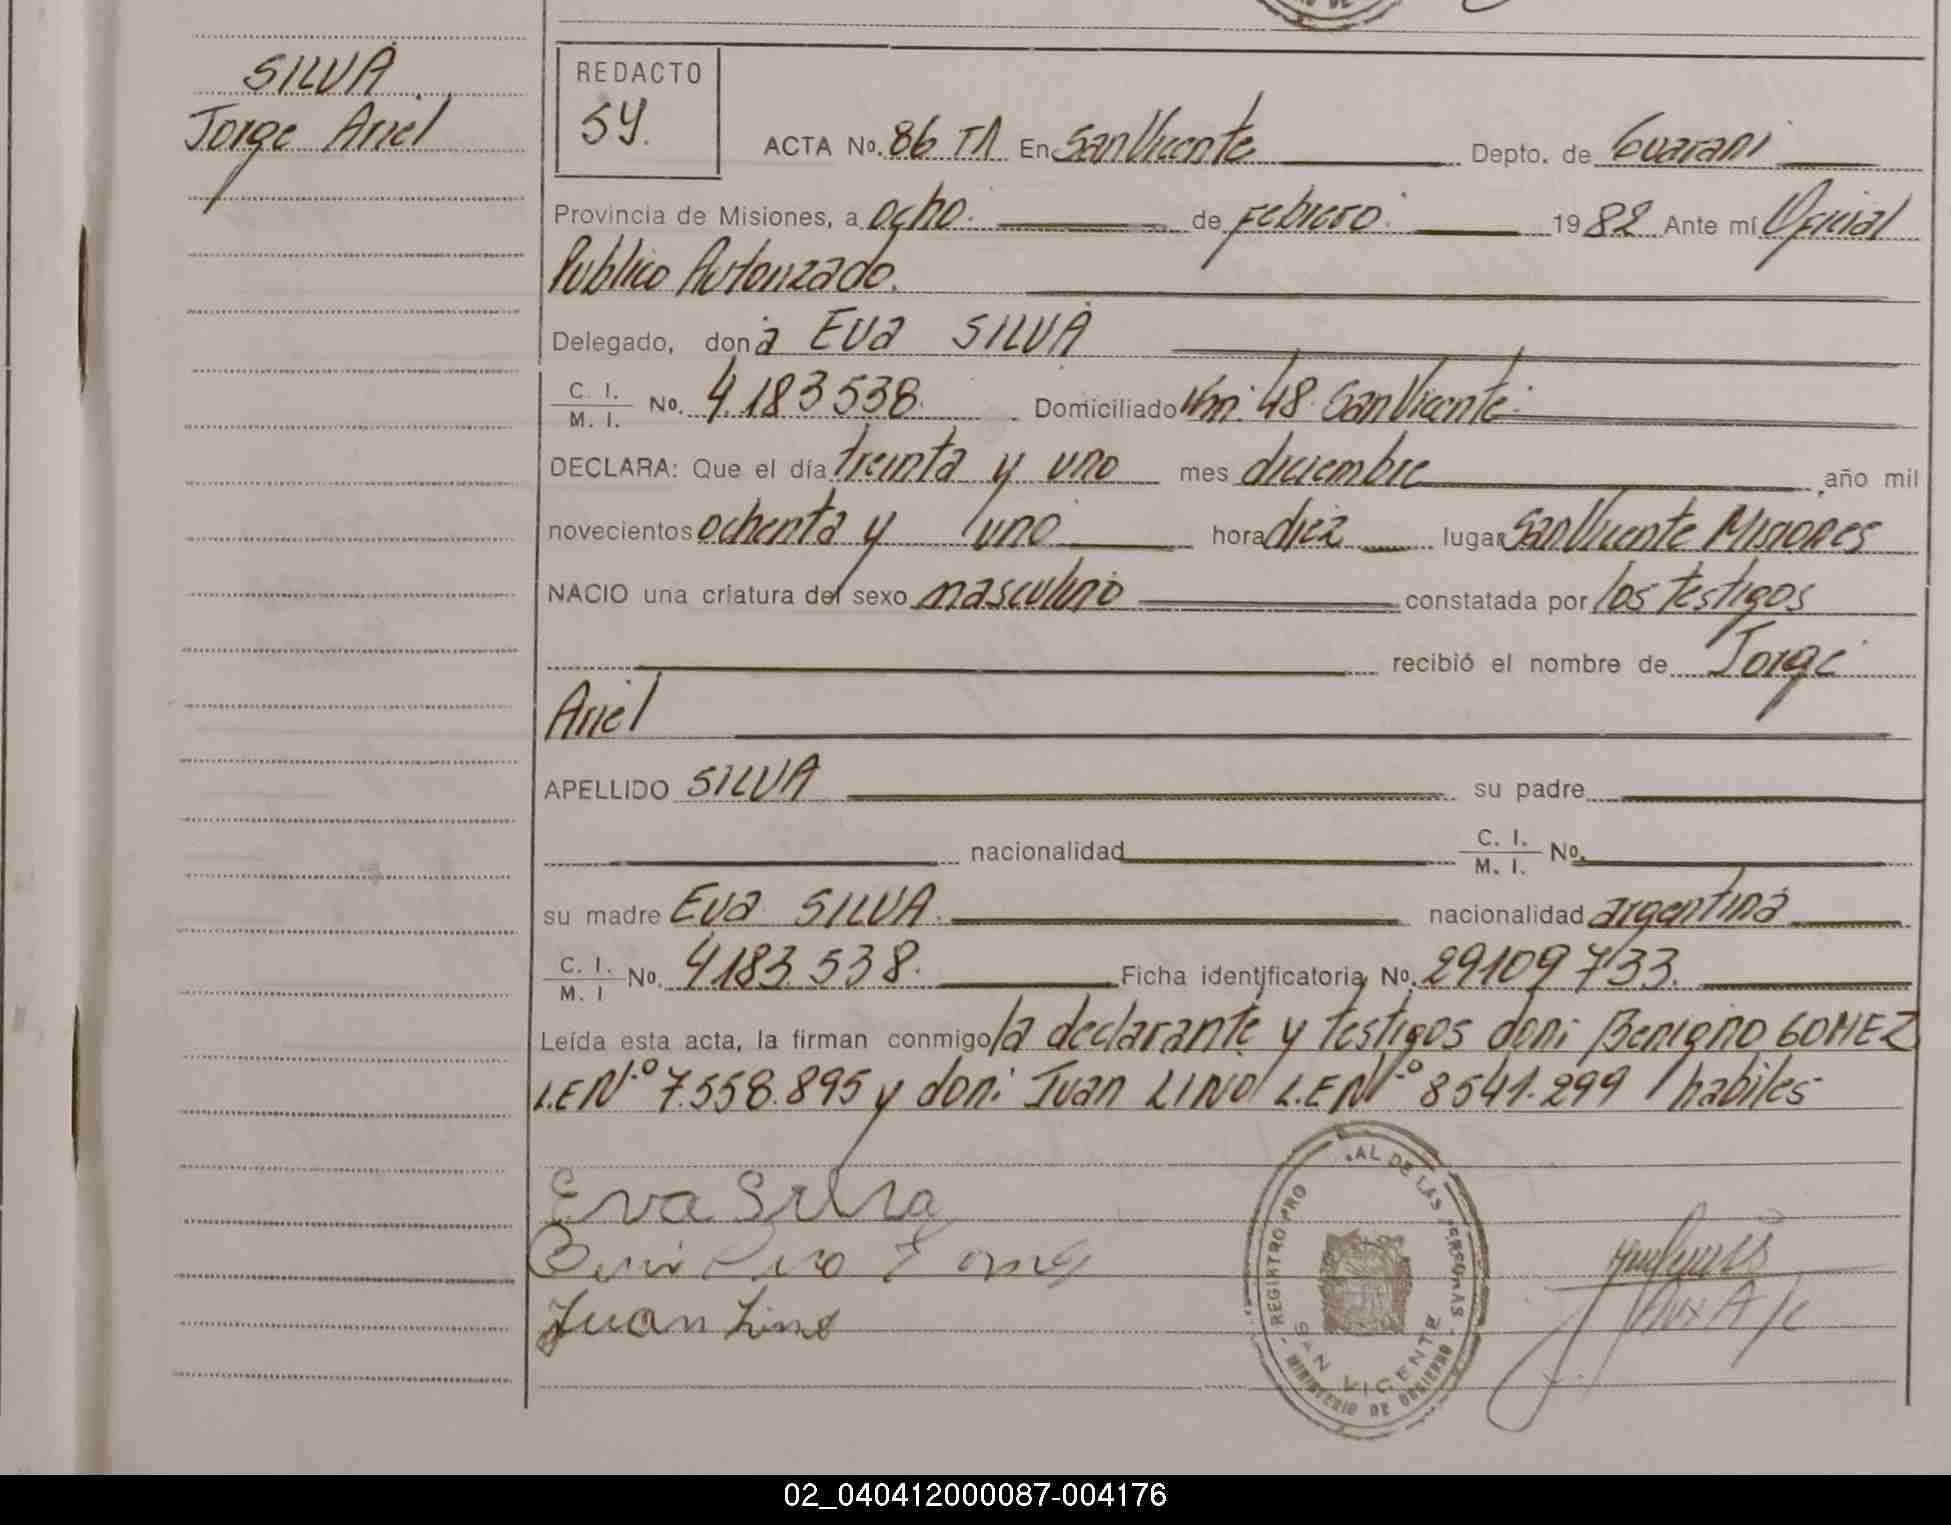 SILVA
Jorge Ariel
REDACTO
SY.
ACTA No. 86 TA En San Vicente Depto. de Guarani
Provincia de Misiones, a ocho. de Febrero. 1982 Ante mí Oficial
Publico Autorizado.
Delegado, don a Eva SILVA
C. I. / M. I. No. 4.183538. Domiciliado Km. 48. San Vicente.
DECLARA: Que el día treinta y uno mes diciembre, año mil
novecientos ochenta y uno hora diez lugar San Vicente Misiones
NACIO una criatura del sexo masculino constatada por los testigos
recibió el nombre de Jorge
Ariel
APELLIDO SILVA su padre
nacionalidad C. I. / M. I. No.
su madre Eva SILVA. nacionalidad argentina
C. I. / M. I No. 4183.538. Ficha identificatoria No. 29109733.
Leída esta acta, la firman conmigo la declarante y testigos don: Benigno GOMEZ
L.E.Nº 7.558.895 y don: Juan LINO L.E Nº 8541.299 habiles
Eva Silva
Juan Lino
REGISTRO PRO AL DE LAS PERSONAS
SAN VICENTE
MINISTERIO DE GOBIERNO
02_040412000087-004176